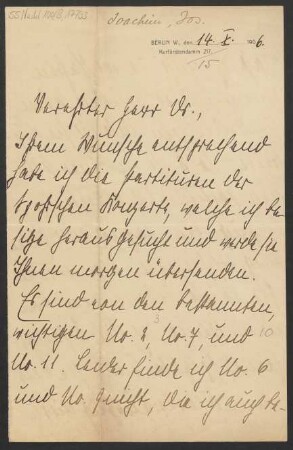 Joachim, Jos.
BERLIN W., den 14. X. 1906.
Kurfürstendamm 217.
15
Verehrter Herr Dr.,
Ihrem Wunsche entsprechend
habe ich die Partituren der
Spohrschen Konzerte, welche ich be-
sitze herausgesucht und werde sie
Ihnen morgen übersenden.
Es sind von den bekannten,
wichtigen No. 2, No. 7, und
No. 11. Leider finde ich No. 6
und No. 9 nicht, die ich auch be-